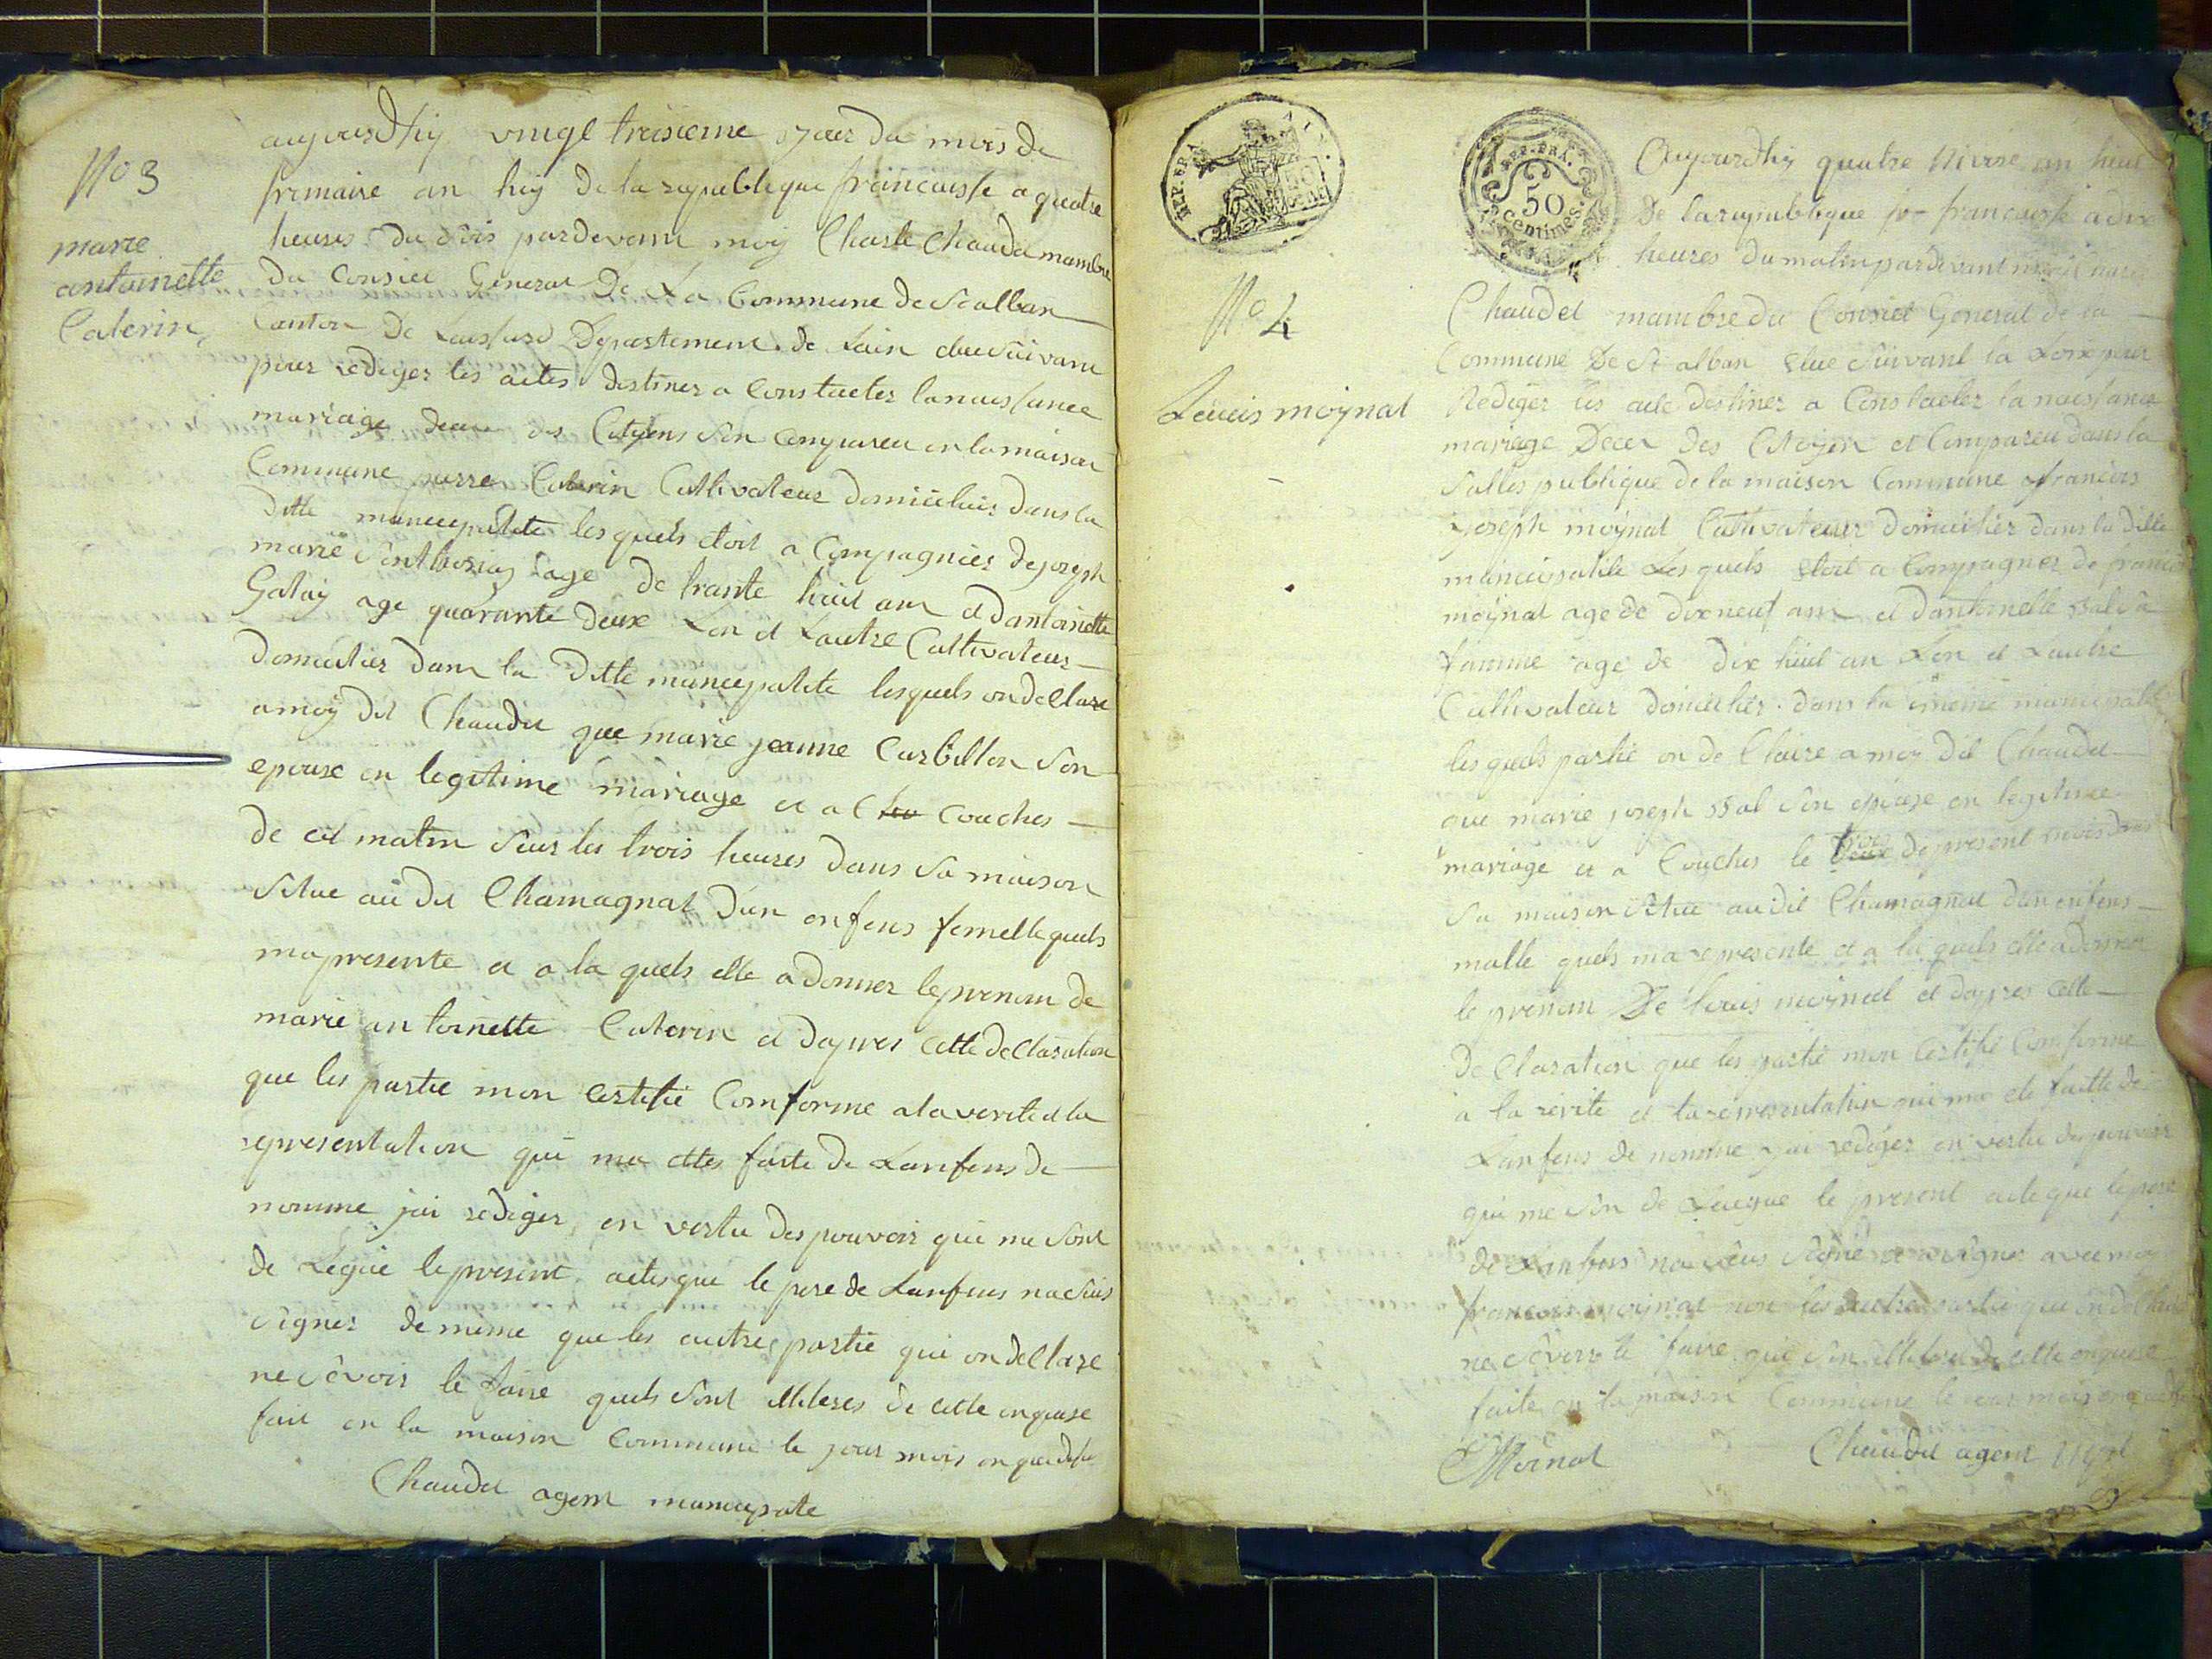 No 3
marie
antoinette
Caterin
aujourdhy vingt troisieme jour du mois de
frimaire an huy de la republique francaisse a quatre
heures du soir pardevant moy Charle Chaudet mambre
du Consiel General De La Commune de St alban
Canton De Departement de Lain elue suivant
pour rediger les actes destines a Constacter la naissance
mariage deces des Citoyens son Compareu en la maison
Commune pierre Caterin Cultivateur domicilies dans la
ditte municipalite les quels etoit a Compagnies de joseph
marie age de trante huit ans et dantoinette
Galay age quarante deux Lon et Lautre Cultivateur
domicilies dans la ditte municipalite lesquels on declare
a moy dit Chaudet que marie jeanne Curbillon Son
epouse en legitime mariage et a Couches
de cit matin Sur les trois heures dans sa maison
situe au dit Chamagnat dun enfens femelle quels
ma presente et a la quels elle a donner le prenom de
marie antoinette Caterin et dapres cette declaration
que les partie mon Certifie Comforme a la verite et la
representation qui ma ettes faite de Lanfens de
nomme jai rediger en vertu des pouvoir qui me sont
de Legue le present actes que le pere de Lanfens na
signer de meme que les autres partie qui on declare
ne sêvoir le faire quels sont illiteres de cette enquise
fait en la maison Commune le jour mois an que dessu
Chaudet agent municipale
REP. FRA.
REP. FRA.
50
Centimes.
No 4
Louis moynat
Aujourdhy quatre Nivose an huit
De la republique francaisse a dix
heures du matin pardevant moy
Chaudet mambre du Consiel General de la
Commune De St alban elue suivant la Loix pour
Rediger les acte destines a Constacter la naissance
mariage Deces des Citoyen et Compareu dans la
Salles publique de la maison Commune francois
joseph moynat Cultivateur domicilier dans la ditte
municipalite Les quels etoit a Compagner de francois
moynat age de dix neuf ans et dantoinette
famme age de dix huit an Lon et Lautre
Cultivateur domicilier dans la meme municipalite
les quels partie on de Claire a moy dit Chaudet
que marie joseph son epouse en legitime
mariage et a Couches le trois du present mois dans
Sa maison situe au dit Chamagnat dun enfens
malle quels ma represente et a la quels elle a donner
le prenom De louis moynat et dapres cette
De Claration que les partie mon Certifie Comforme
a la verite et la representation qui ma ete faitte de
Lanfens de nomme jai rediger en vertu des pouvoir
qui me son de Leegue le present acte que le pere
de Lanfens na signer avec moy
francois moynat non les autres partie qui on de Clare
ne sêvoir le faire qui son de cette enquise
faite en la maison Commune le jour mois an que
Moinat
Chaudet agent